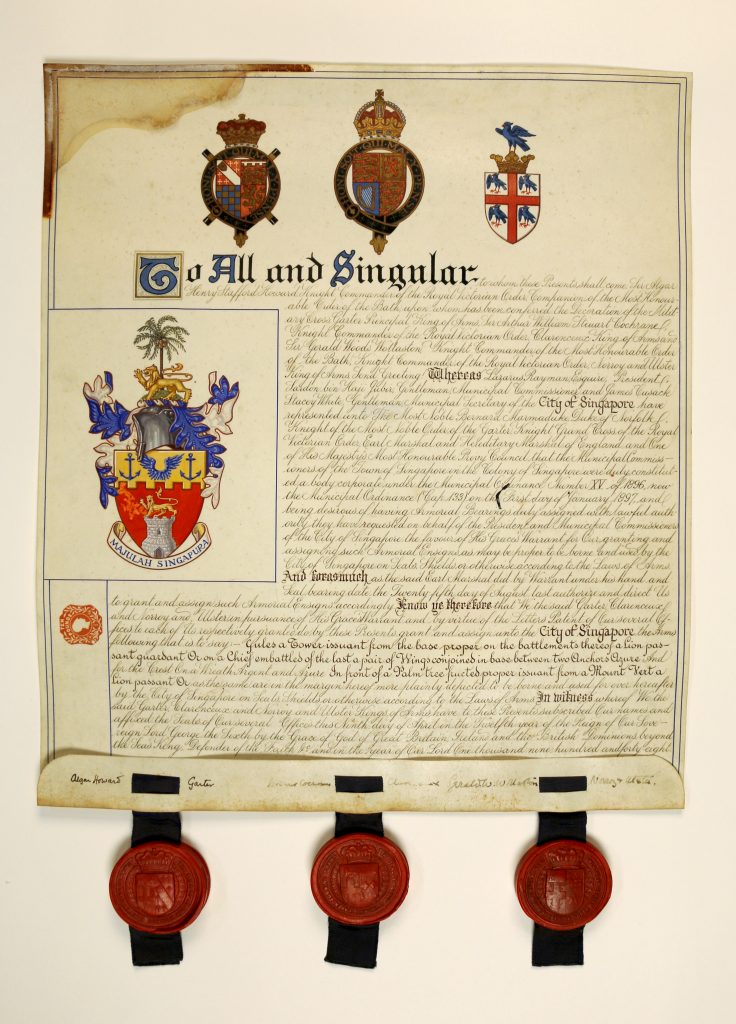 To All and Singular to whom these Presents shall come Sir Algar
Henry Stafford Howard Knight Commander of the Royal Victorian Order, Companion of the Most Honour-
able Order of the Bath, upon whom has been conferred the Decoration of the Milit-
ary Cross Garter Principal King of Arms Sir Arthur William Steuart Cochrane
Knight Commander of the Royal Victorian Order, Clarenceux King of Arms and
Sir Gerald Woods Wollaston Knight Commander of the Most Honourable Order
of the Bath, Knight Commander of the Royal Victorian Order, Norroy and Ulster
King of Arms Send Greeting Whereas Lazarus Rayman, Esquire, President,
Sardon bin Haji Jubir, Gentleman, Municipal Commissioner, and James Cusack
Stacey White Gentleman, Municipal Secretary of the City of Singapore have
represented unto The Most Noble Bernard Marmaduke, Duke of Norfolk,
Knight of the Most Noble Order of the Garter Knight Grand Cross of the Royal
Victorian Order, Earl Marshal and Hereditary Marshal of England and One
of His Majesty's Most Honourable Privy Council that the Municipal Commiss-
ioners of the Town of Singapore in the Colony of Singapore were duly constitut-
ed a body corporate under the Municipal Ordinance Number XV of 1896, now
the Municipal Ordinance (Cap. 133) on the First day of January 1897, and
being desirous of having Armorial Bearings duly assigned with lawful auth-
ority they have requested on behalf of the President and Municipal Commissioners
of the City of Singapore the favour of His Grace's Warrant for Our granting and
assigning such Armorial Ensigns as may be proper to be borne and used by the
City of Singapore on Seals Shields or otherwise according to the Laws of Arms
And forasmuch as the said Earl Marshal did by Warrant under his hand and
Seal bearing date the Twenty fifth day of August last authorize and direct Us
to grant and assign such Armorial Ensigns accordingly Know ye therefore that We the said Garter, Clarenceux
and Norroy and Ulster in pursuance of His Grace's Warrant and by virtue of the Letters Patent of Our several Of-
fices to each of Us respectively granted do by these Presents grant and assign unto the City of Singapore the Arms
following that is to say:- Gules a Tower issuant from the base proper on the battlements thereof a lion pas-
sant guardant Or on a Chief embattled of the last a pair of Wings conjoined in base between two Anchors Azure And
for the Crest On a Wreath Argent and Azure In front of a Palm tree fructed proper issuant from a Mount Vert a
lion passant Or as the same are in the margin hereof more plainly depicted to be borne and used for ever hereafter
by the City of Singapore on Seals Shields or otherwise according to the Laws of Arms In witness whereof We the
said Garter, Clarenceux and Norroy and Ulster Kings of Arms have to these Presents subscribed Our names and
affixed the Seals of Our several Offices this Ninth day of April in the Twelfth year of the Reign of Our Sove-
reign Lord George the Sixth by the Grace of God of Great Britain, Ireland and the British Dominions beyond
the Seas King, Defender of the Faith &c and in the Year of Our Lord One thousand nine hundred and forty eight
MAJULAH SINGAPURA
Algar Howard Garter
Gerald W. Wollaston Norroy & Ulster.